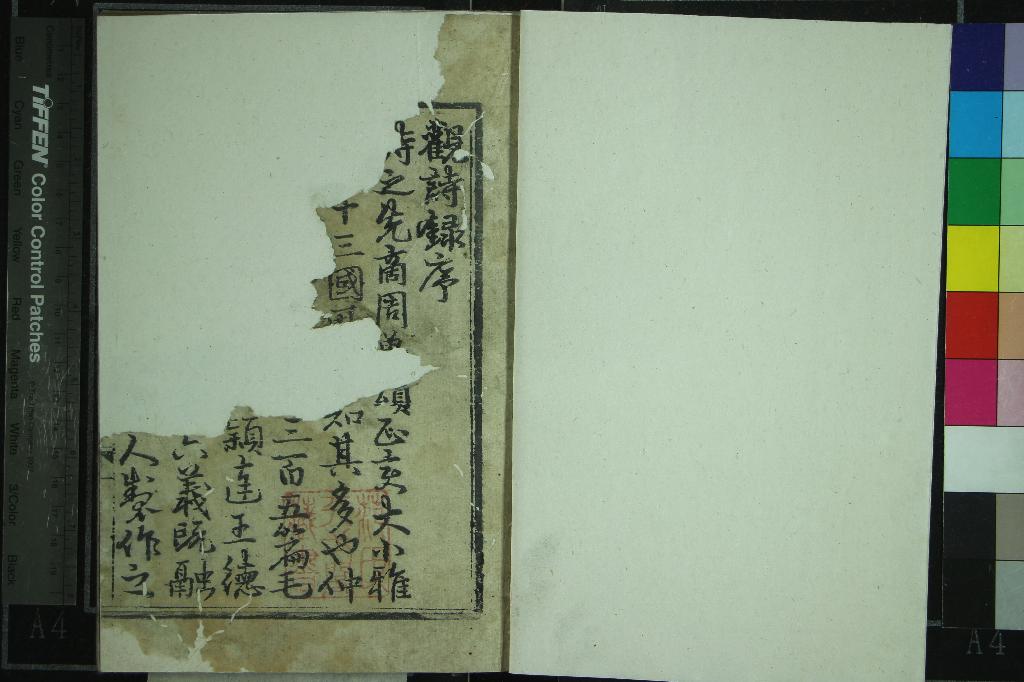 觀詩録序
詩之先商周 頌正變大小雅
十三國 知其多也仲
三百五篇毛
穎達王德
六義既融
人製作之
TIFFEN Color Control Patches
Blue Cyan Green Yellow Red Magenta White 3/Color Black
A4
A4